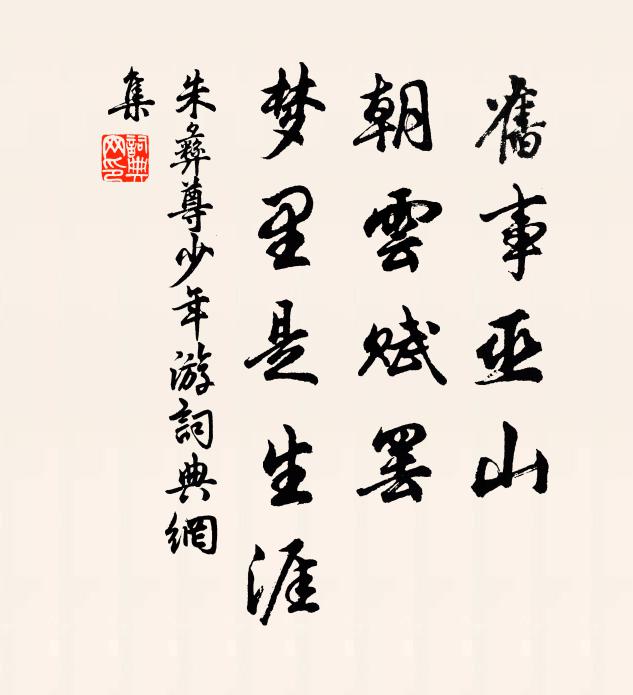 舊事巫山
朝雲赋罢
梦里是生涯
朱彝尊少年游詞典網
集
詞典网印